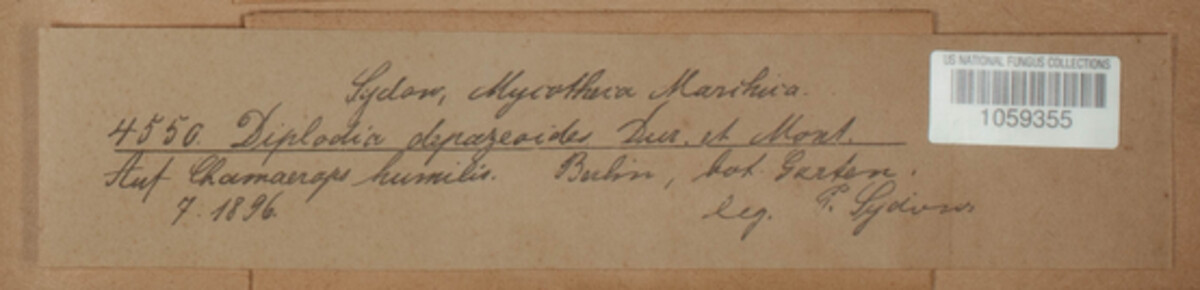 Sydow, Mycotheca Marchica.
4550. Diplodia depazeoides Dur. et Mont.
Auf Chamaerops humilis. Berlin, bot. Garten.
7. 1896. leg. P. Sydow.
US NATIONAL FUNGUS COLLECTIONS
1059355